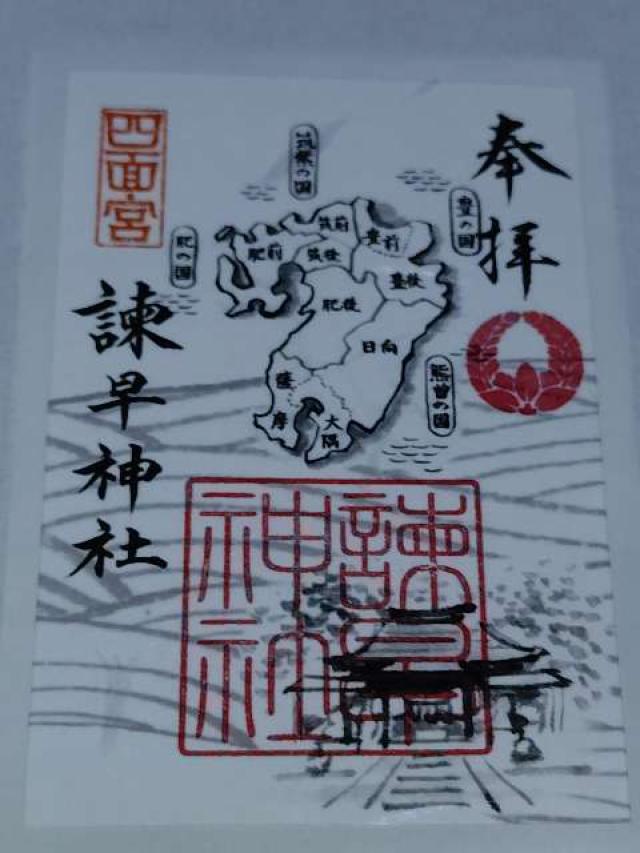 奉拝
豊の国
筑紫の国
肥の国
熊曽の国
筑前
豊前
肥前
筑後
豊後
肥後
日向
薩摩
大隅
四面宮
諫早神社
諫早
神社